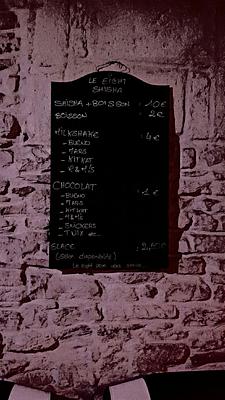 LE EIGHT
SHISHA
SHISHA + BOISSON : 10€
BOISSON : 2€
MILKSHAKE : 4€
- BUENO
- MARS
- KITKAT
- M&M'S
CHOCOLAT : 1€
- BUENO
- MARS
- KITKAT
- M&M'S
- SNICKERS
- TWIX etc...
GLACE : 2,50€
(selon disponibilité)
Le eight